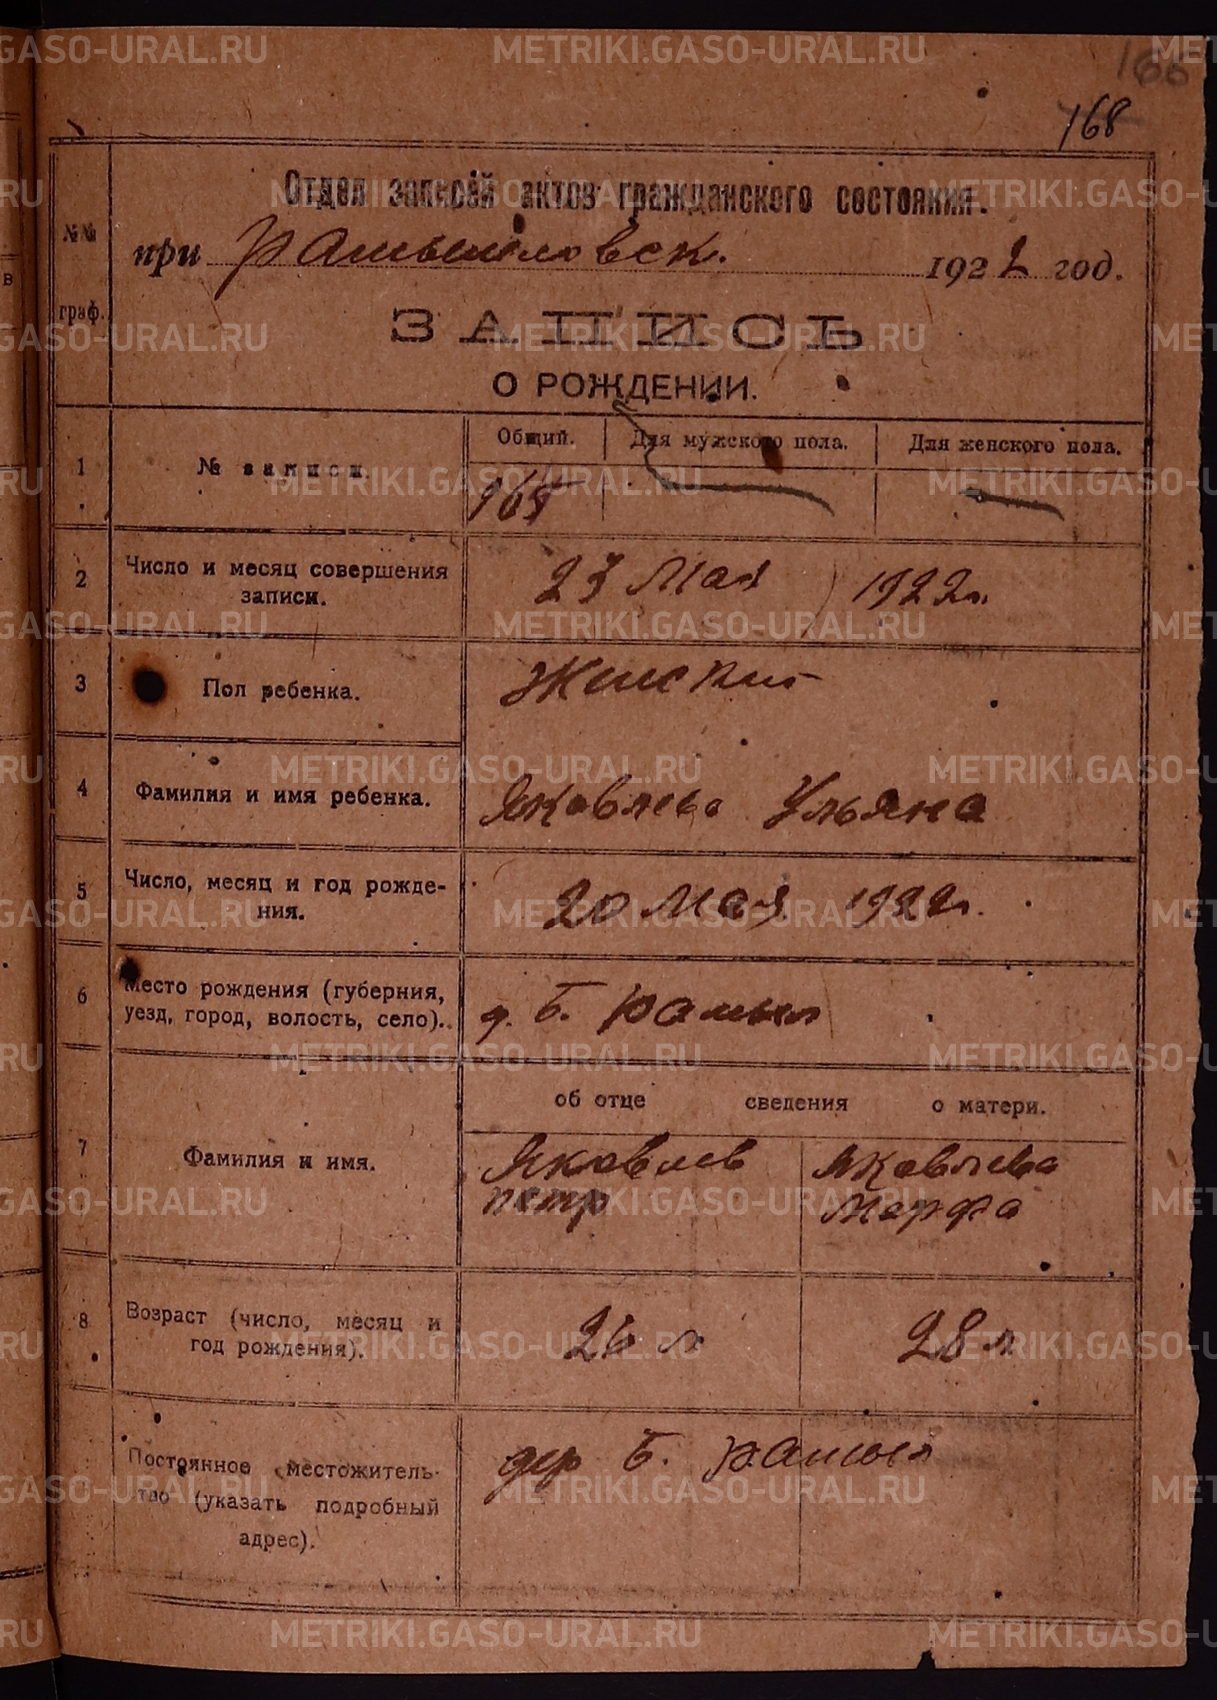 168
Отдел записей актов гражданского состояния.
№№ граф.
при Рамыловск. 1922 год.
ЗАПИСЬ
О РОЖДЕНИИ.
1 № записи. Общий. Для мужского пола. Для женского пола.
2 Число и месяц совершения
записи.
23 Мая 1922 г.
3 Пол ребенка. Женский
4 Фамилия и имя ребенка. Яковлева Ульяна
5 Число, месяц и год рожде-
ния.
20 Мая 1922 г.
6 Место рождения (губерния,
уезд, город, волость, село).
д. Б. Рамыл
об отце сведения о матери.
7 Фамилия и имя.
Яковлев Яковлева
Петр Марфа
8 Возраст (число, месяц и
год рождения).
26 л 28 л
Постоянное местожитель-
тво (указать подробный
адрес).
дер Б. Рамыл
METRIKI.GASO-URAL.RU